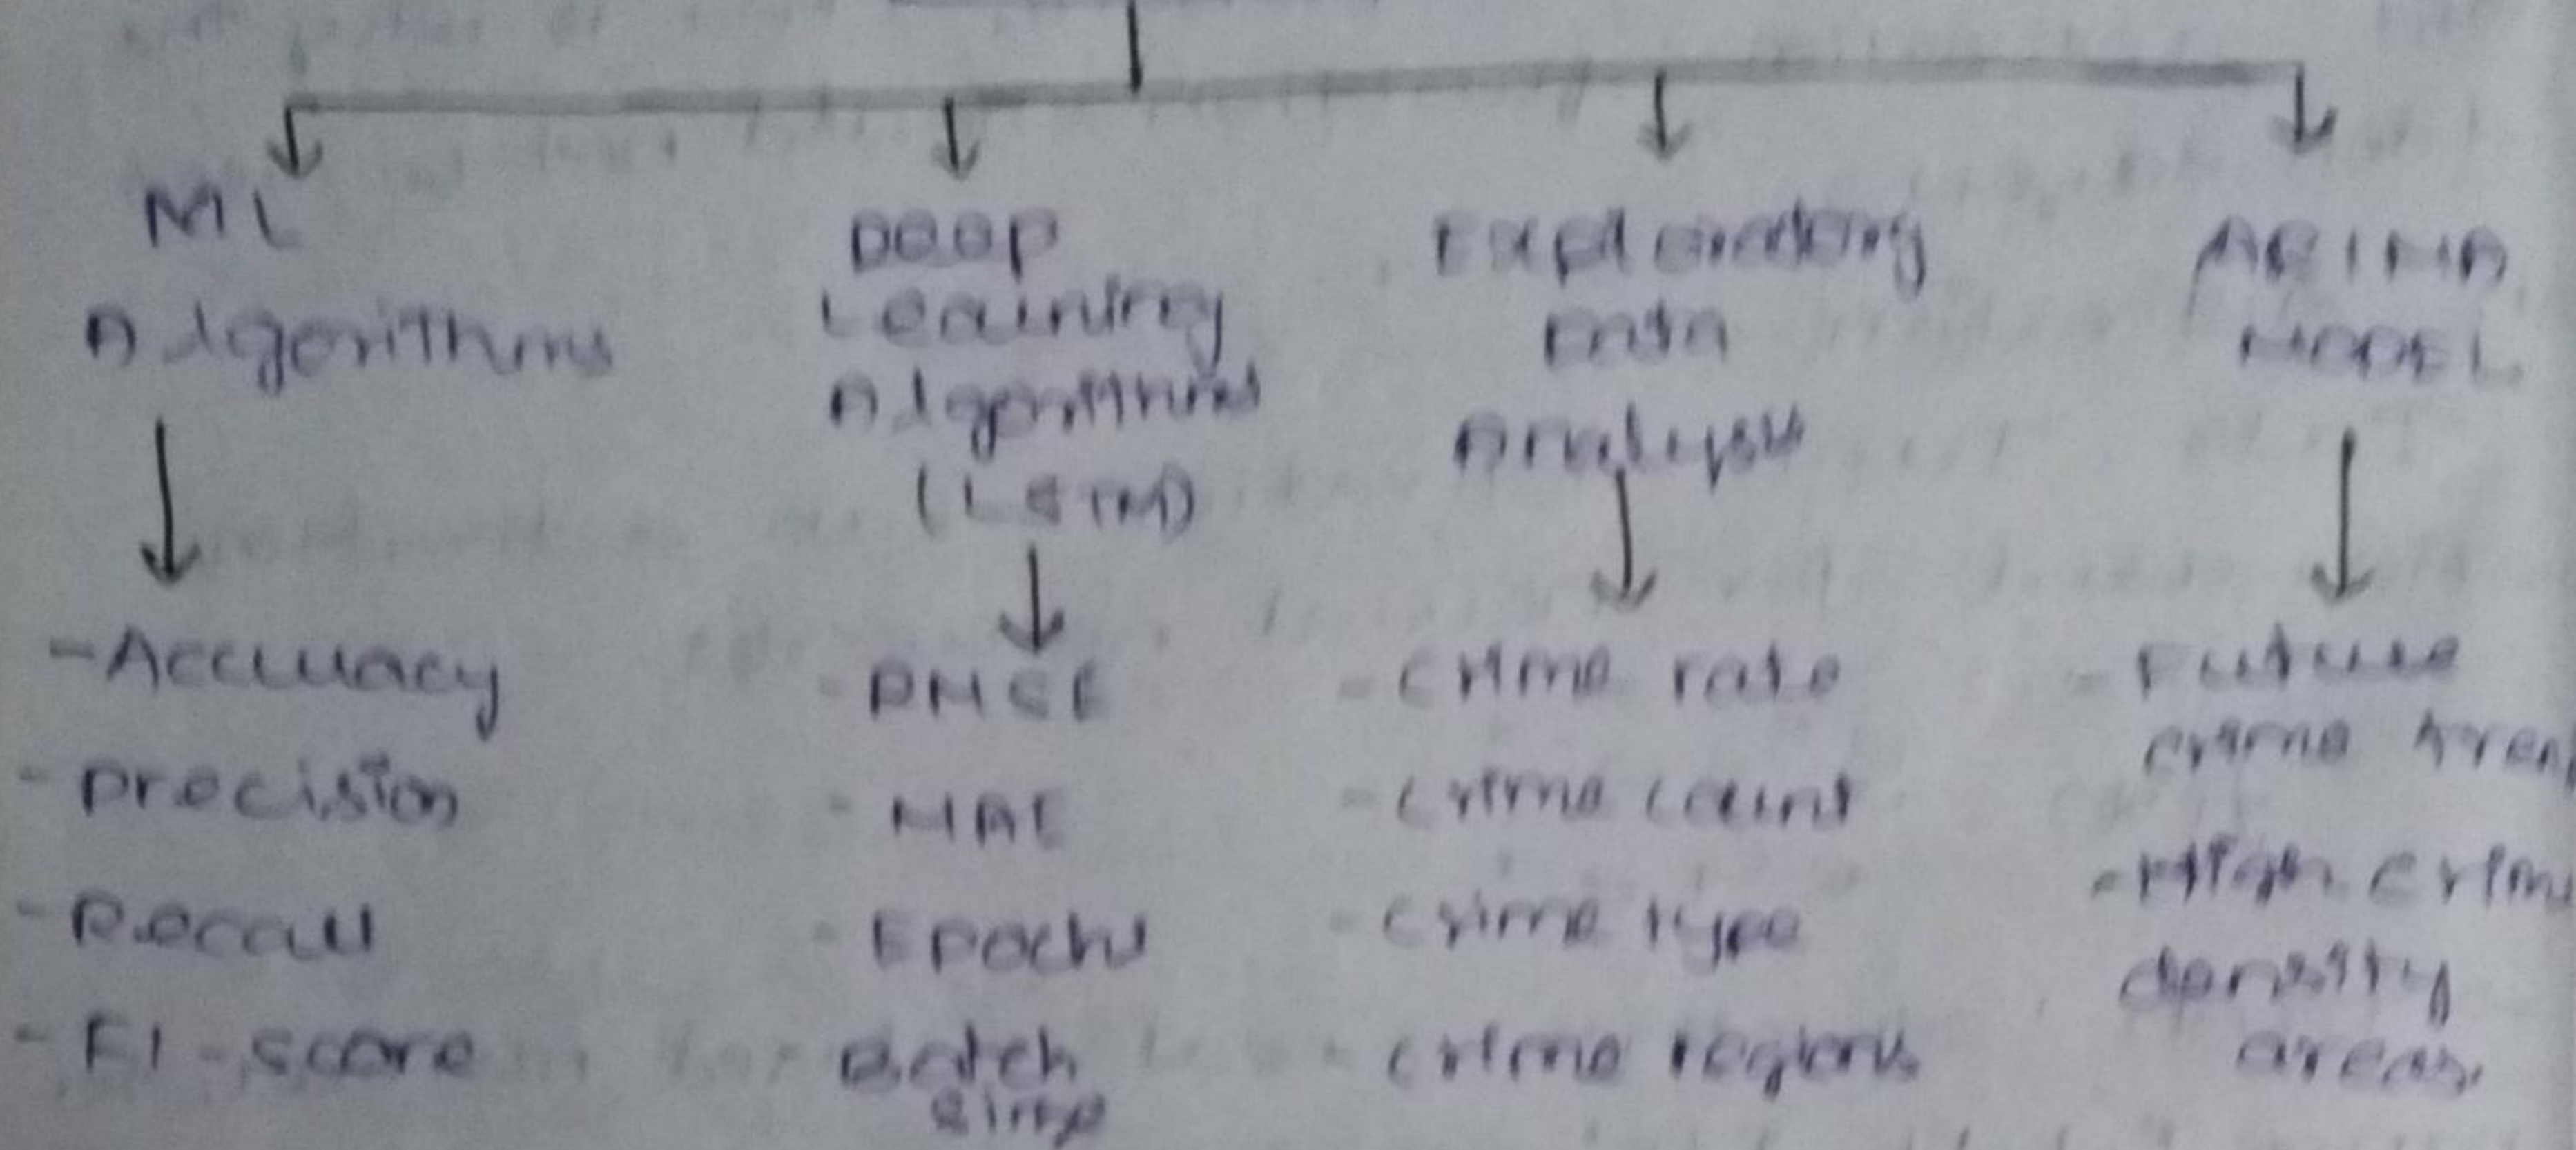 ML
Algorithms
- Accuracy
- Precision
- Recall
- F1 - score
Deep
Learning
Algorithms
(LSTM)
- RMSE
- MAE
- Epochs
Batch
size
Exploratory
Data
Analysis
- Crime rate
- Crime count
- Crime type
- Crime regions
ARIMA
MODEL
- Future
crime
- High
density
areas